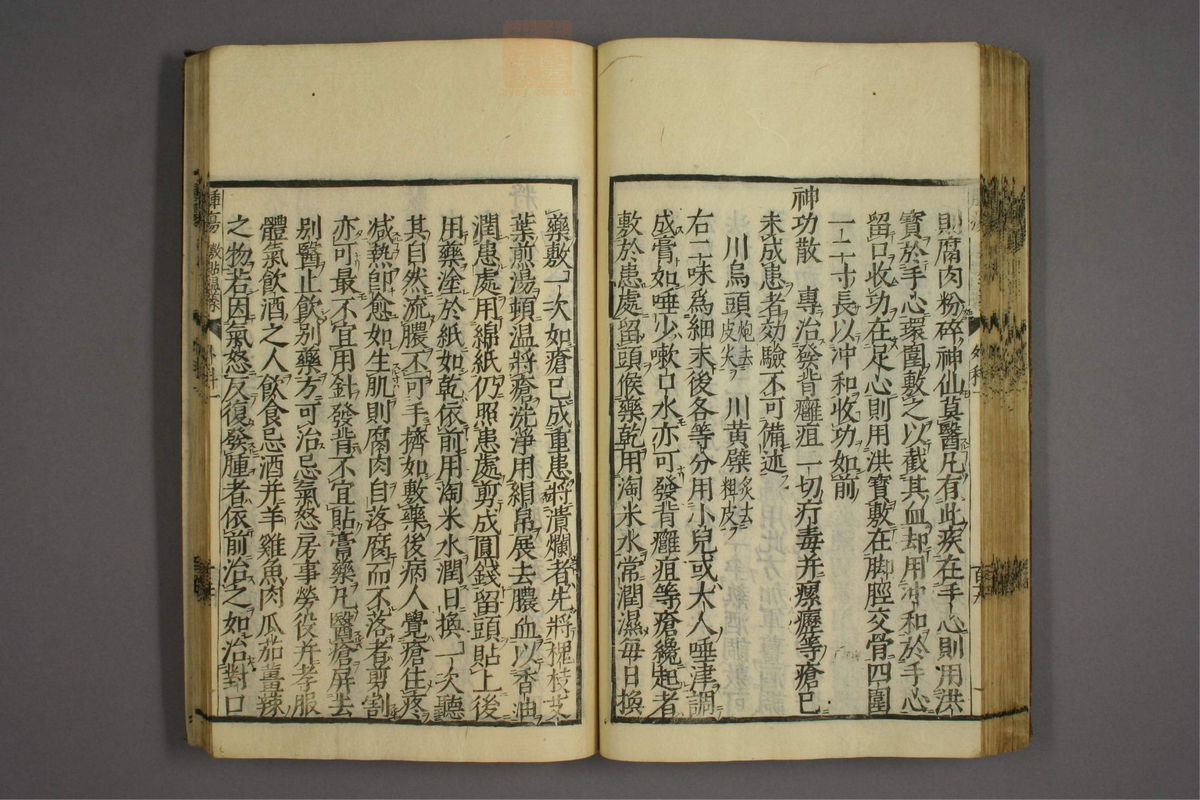 則腐肉粉碎神仙莫醫凡有此疾在手心則用洪
寶於手心環圍敷之以截其血却用沖和於手心
留口收功在足心則用洪寶敷在脚脛交骨四圍
一二寸長以沖和收功如前
神功散 專治發背癰疽一切疔毒并瘰癧等瘡已
未成患者効驗不可備述
川烏頭炮去皮尖 川黃檗炙去粗皮
右二味爲細末後各等分用小兒或大人唾津調
成膏如唾少嗽口水亦可發背癰疽等瘡纔起者
敷於患處留頭候藥乾用淘米水常潤濕每日換
藥敷一次如瘡已成重患將潰爛者先將槐枝艾
葉煎湯頓温將瘡洗淨用絹帛展去膿血以香油
潤患處用綿紙仍照患處剪成圓錢留頭貼上後
用藥塗於紙如乾依前用淘米水潤日換一次聽
其自然流膿不可手擠如敷藥後病人覺瘡住疼
减熱卽愈如生肌則腐肉自落腐而不落者剪割
亦可最不宜用針發背不宜貼膏藥凡醫瘡屏去
别醫止飲别藥方可治忌氣怒房事勞役并孝服
體氣飲酒之人飲食忌酒并羊雞魚肉瓜茄薑辣
之物若因氣怒反復發腫者依前治之如治對口